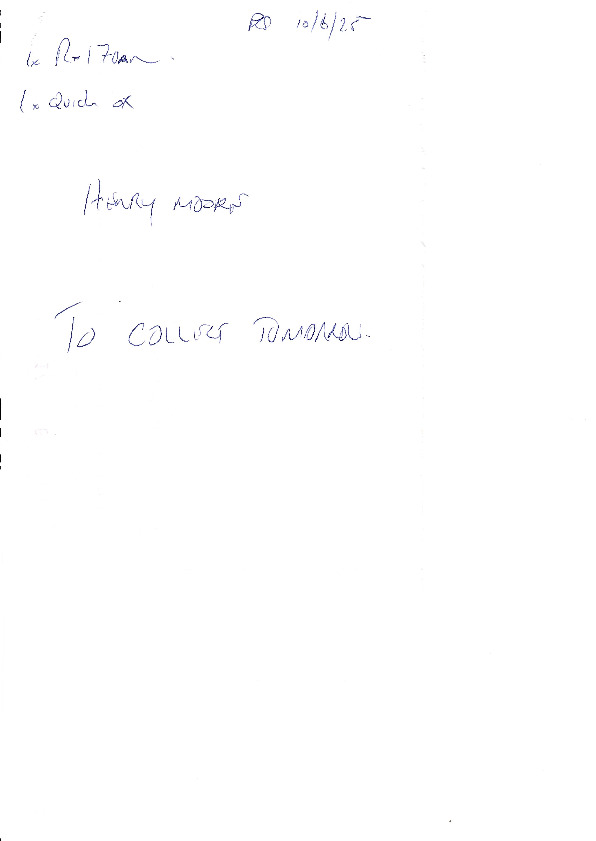 RS 10/6/25
1x
1x Quick ox
HENRY MOORE
TO COLLECT TOMORROW.